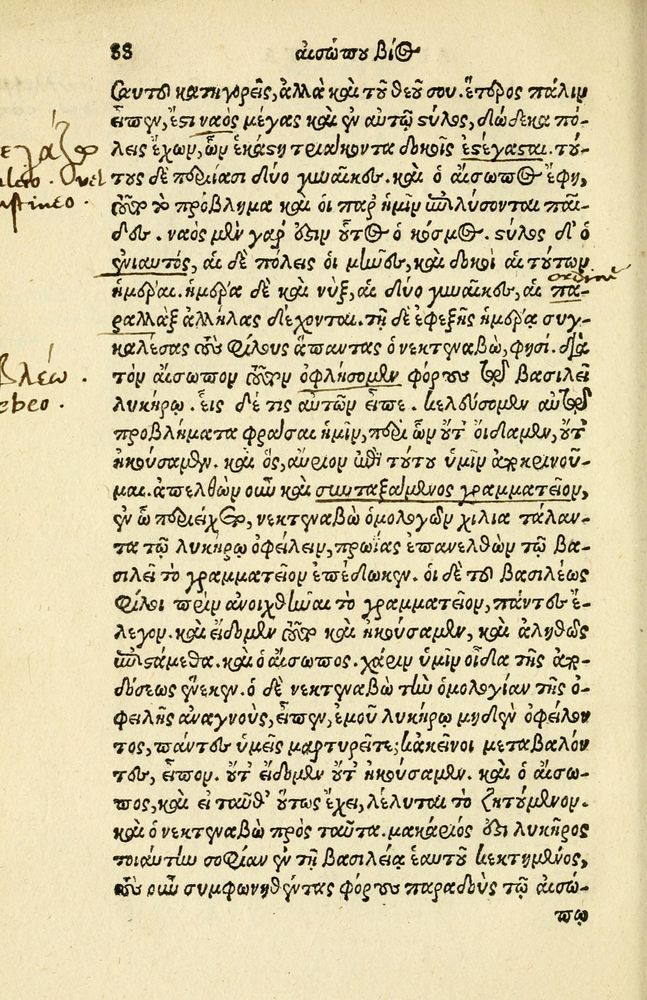 88 αἰσώπου βίος
σαυτοῦ κατηγορεῖς, ἀλλὰ καὶ τοῦ θεοῦ σου. ἕτερος πάλιν
εἶπεν, ἔστι ναὸς μέγας καὶ ἐν αὐτῷ στύλος, δώδεκα πό-
λεις ἔχων, ὧν ἑκάστη τριάκοντα δοκοῖς ἐστέγασται. τού-
τους δὲ περιίασι δύο γυναῖκες. καὶ ὁ αἴσωπος ἔφη,
τοῦτο τὸ πρόβλημα καὶ οἱ παρ' ἡμῖν ἐπιλύσονται παῖ-
δες. ναὸς μὲν γάρ ἐστιν οὗτος ὁ κόσμος. στύλος δ' ὁ
ἐνιαυτός, αἱ δὲ πόλεις οἱ μῆνες, καὶ δοκοὶ αἱ τούτων
ἡμέραι. ἡμέρα δὲ καὶ νὺξ, αἱ δύο γυναῖκες, αἳ πα-
ραλλὰξ ἀλλήλας διέχονται. τῇ δὲ ἐφεξῆς ἡμέρᾳ συγ-
καλέσας τοὺς φίλους ἅπαντας ὁ νεκτεναβὼ, φησί. διὰ
τὸν αἴσωπον τοῦτον ὀφλήσομεν φόρους τῷ βασιλεῖ
λυκήρῳ. εἷς δέ τις αὐτῶν εἶπε. κελεύσομεν αὐτῷ
προβλήματα φράσαι ἡμῖν, περὶ ὧν οὔτ' οἴδαμεν, οὔτ'
ἠκούσαμεν. καὶ ὃς, αὔριον περὶ τούτου ὑμῖν ἀποκρινοῦ-
μαι. ἀπελθὼν οὖν καὶ συνταξάμενος γραμματεῖον,
ἐν ᾧ περιείχετο, νεκτεναβὼ ὁμολογῶν χίλια τάλαν-
τα τῷ λυκήρῳ ὀφείλειν, πρωίας ἐπανελθὼν τῷ βα-
σιλεῖ τὸ γραμματεῖον ἐπέδωκεν. οἱ δὲ τοῦ βασιλέως
φίλοι πρὶν ἀνοιχθῆναι τὸ γραμματεῖον, πάντες ἔ-
λεγον. καὶ εἴδομεν τοῦτο καὶ ἠκούσαμεν, καὶ ἀληθῶς
ἐπιστάμεθα. καὶ ὁ αἴσωπος. χάριν ὑμῖν οἶδα τῆς ἀπο-
δόσεως ἕνεκεν. ὁ δὲ νεκτεναβὼ τὴν ὁμολογίαν τῆς ὀ-
φειλῆς ἀναγνοὺς, εἶπεν, ἐμοῦ λυκήρῳ μηδὲν ὀφείλον
τος, πάντες ὑμεῖς μαρτυρεῖτε; κἀκεῖνοι μεταβαλόν
τες, εἶπον. οὔτ' εἴδομεν οὔτ' ἠκούσαμεν. καὶ ὁ αἴσω-
πος, καὶ εἰ ταῦθ' οὕτως ἔχει, λέλυται τὸ ζητούμενον.
καὶ ὁ νεκτεναβὼ πρὸς ταῦτα. μακάριός ἐστι λυκῆρος
τοιαύτην σοφίαν ἐν τῇ βασιλείᾳ ἑαυτοῦ κεκτημένος,
τοὺς οὖν συμφωνηθέντας φόρους παραδοὺς τῷ αἰσώ-
πῳ